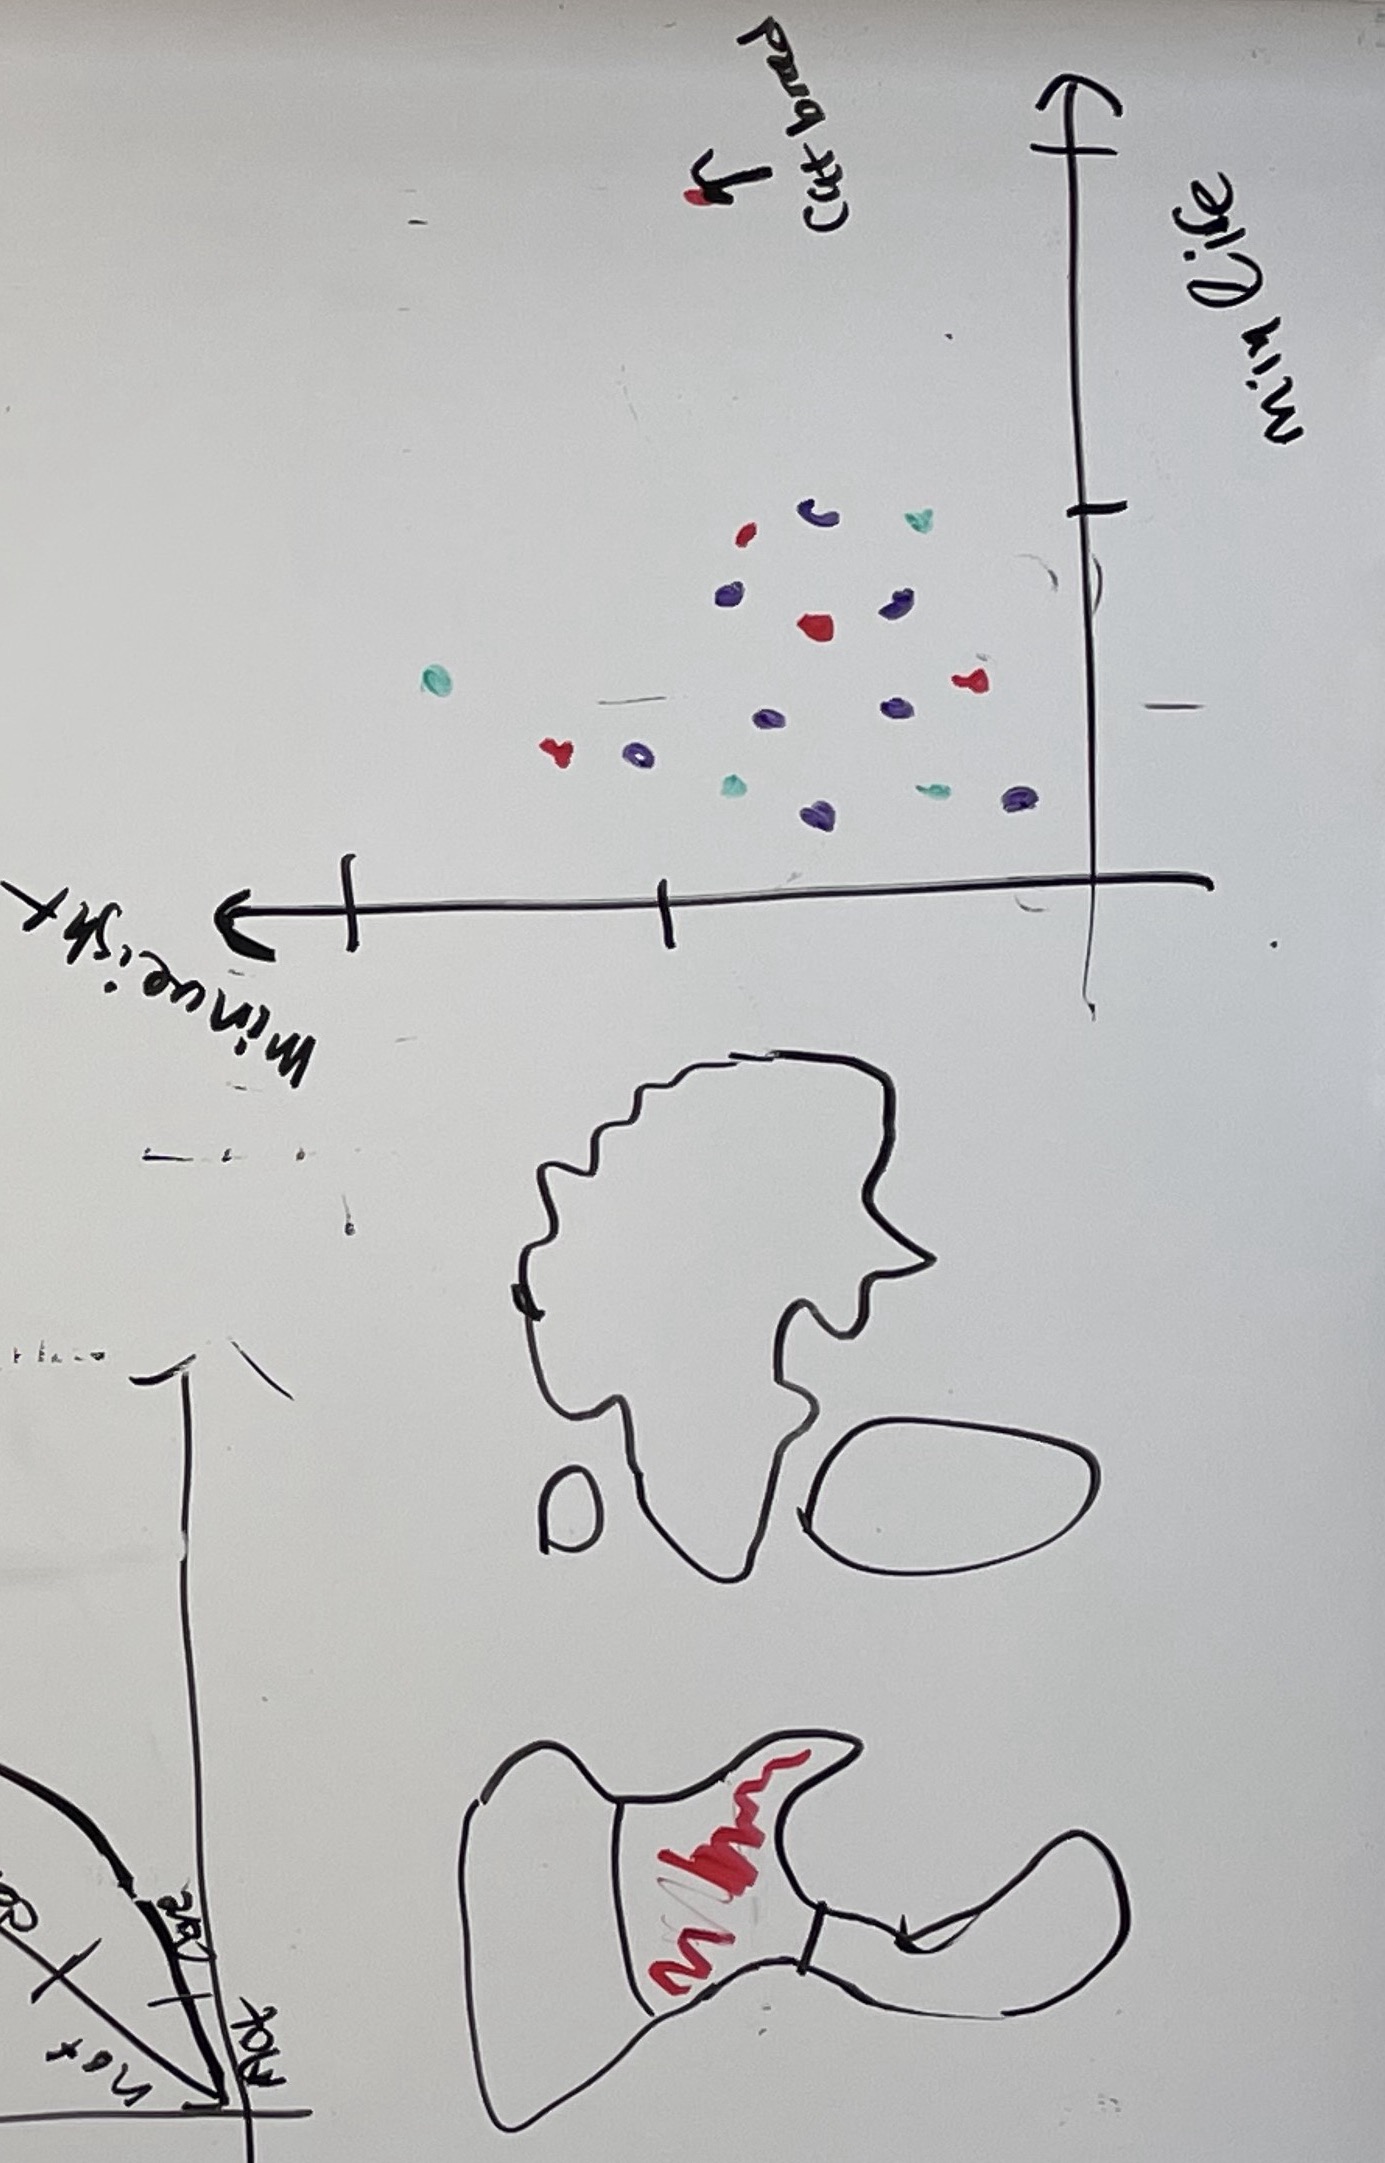 not
Core
Act
minweight
cat breed
min life